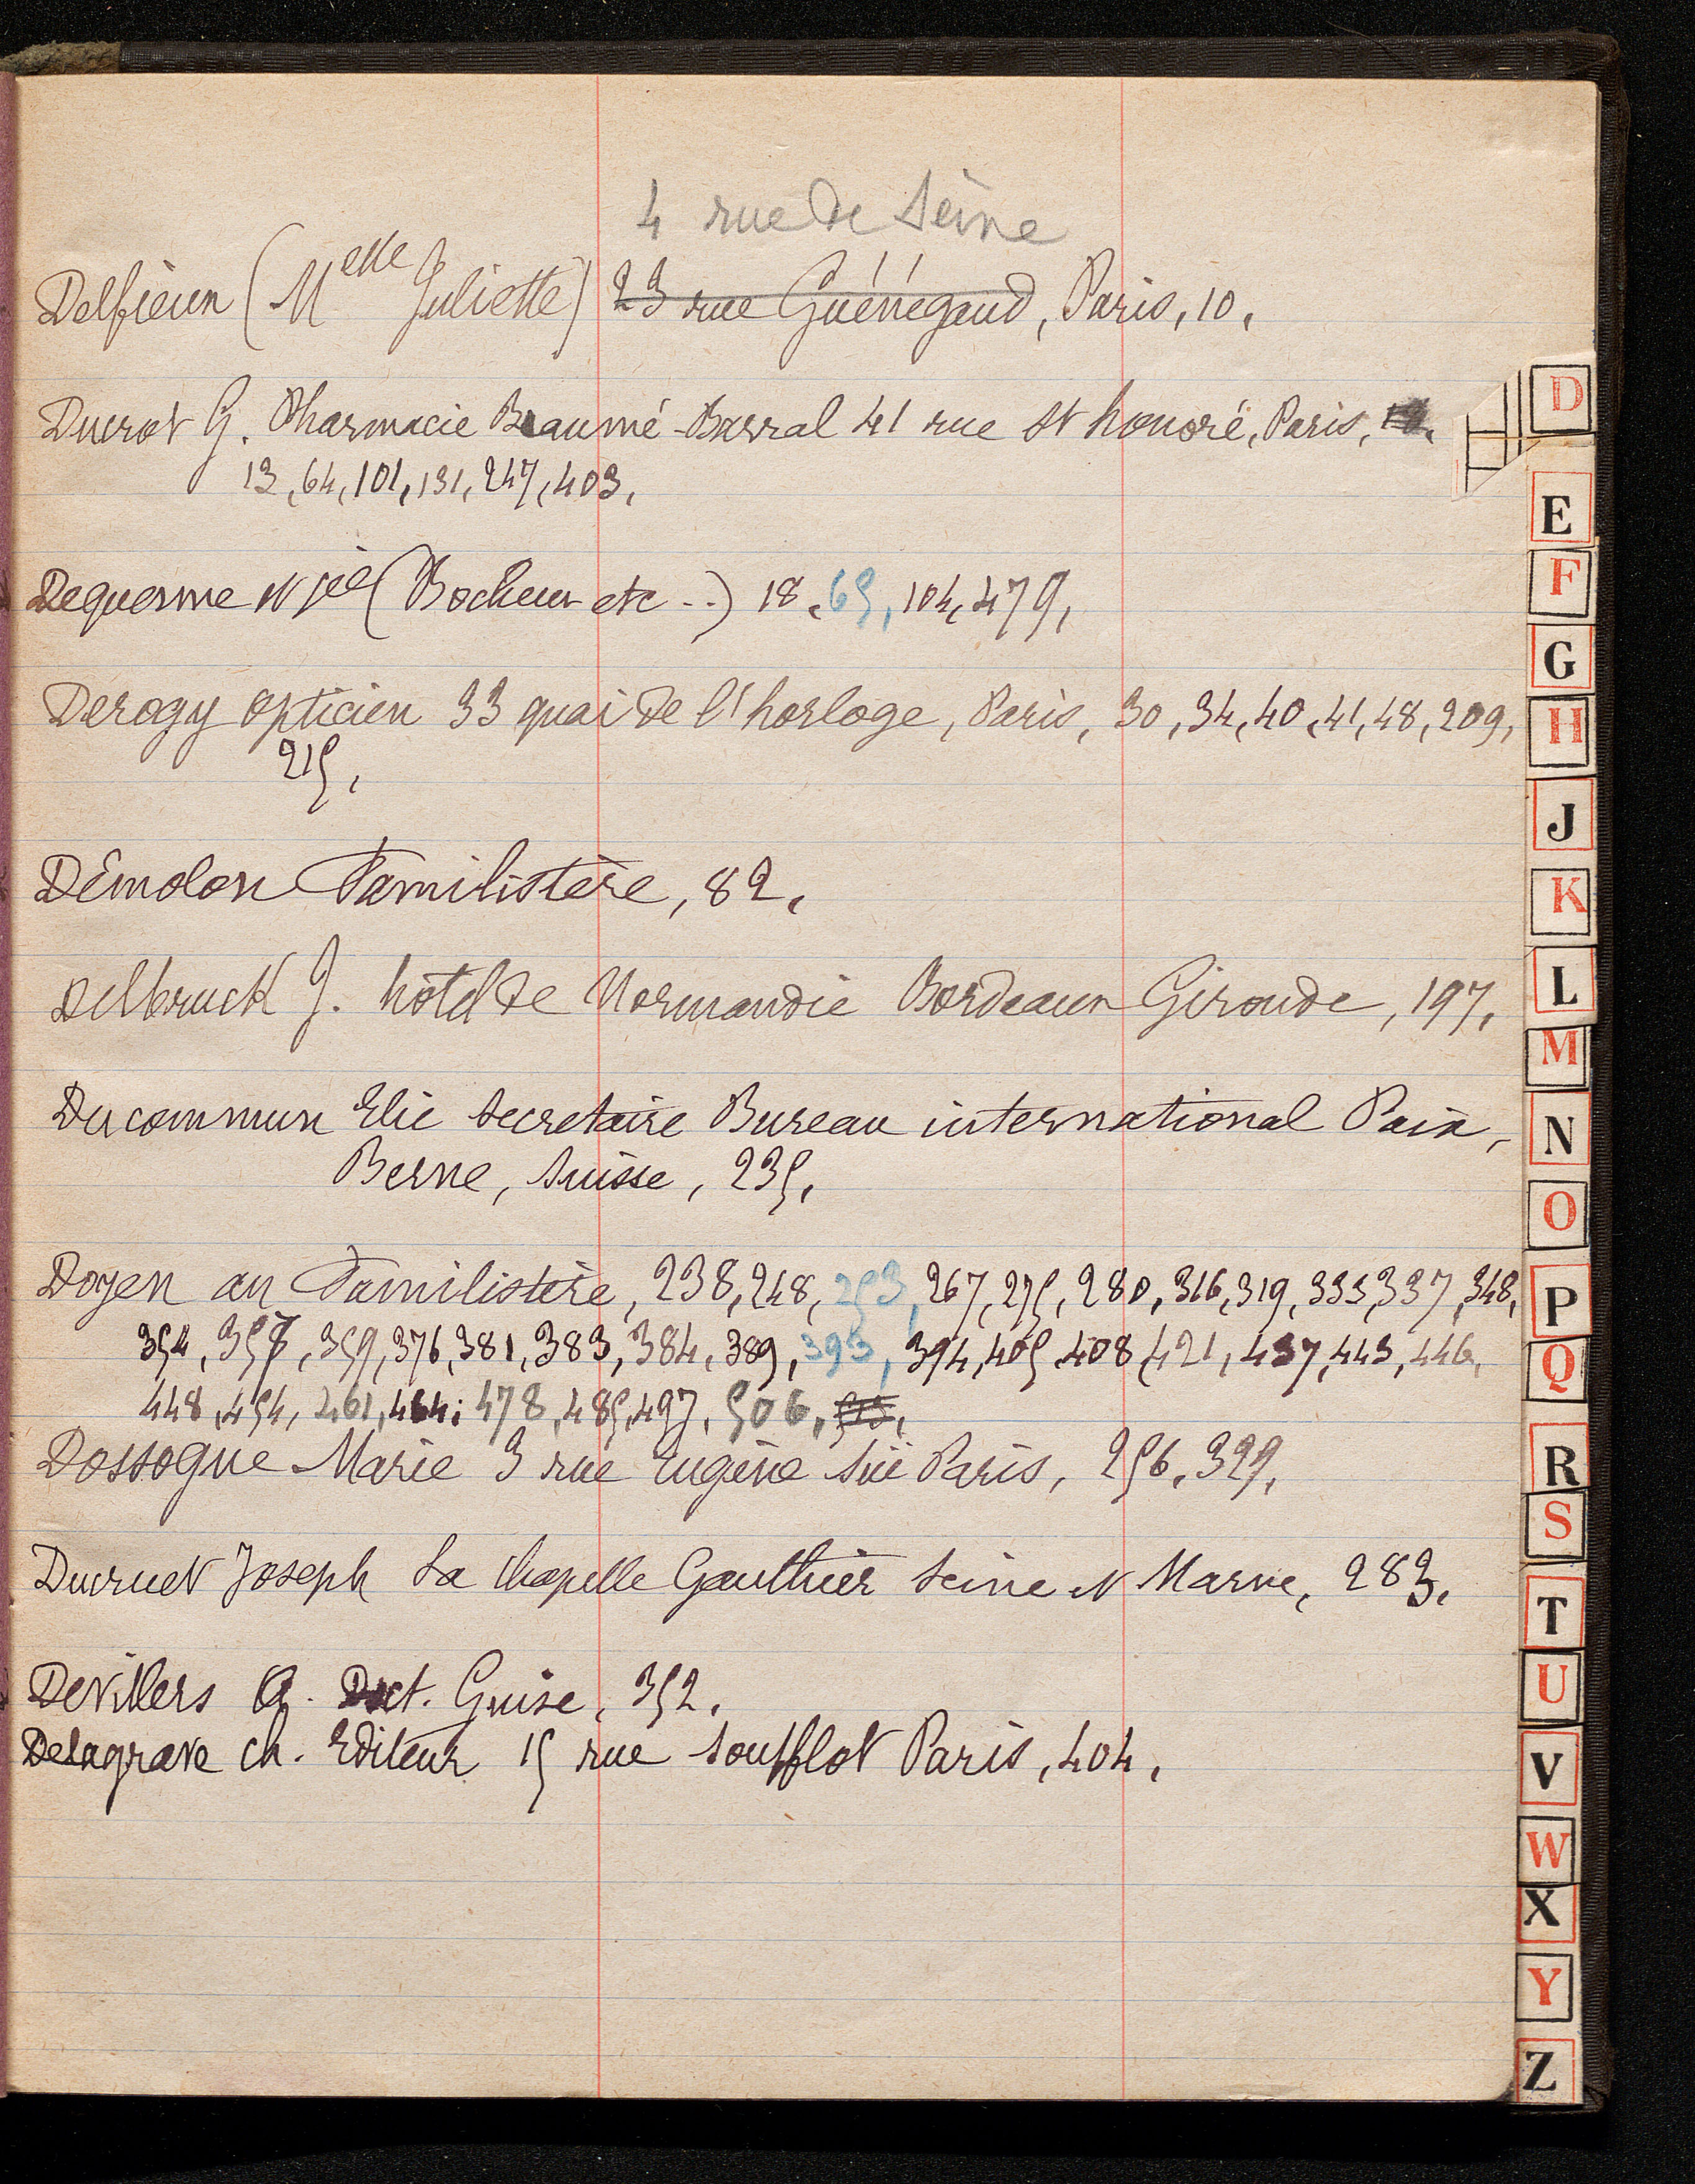 4 rue de Seine
Delfieux (Melle Juliette) 23 rue Guénégaud, Paris, 10,
Ducrot G. Pharmacie Beaumé-Barral 41 rue St honoré, Paris,
13, 64, 101, 131, 247, 403,
Dequenne et fils (Bocheux etc..) 18, 65, 104, 479,
Derogy opticien 33 quai de l'horloge, Paris, 30, 34, 40, 41, 48, 209,
215,
Démolon Familistère, 82,
Delbruck J. hôtel de Normandie Bordeaux Gironde, 197,
Ducommun Elie secretaire Bureau international Paix,
Berne, Suisse, 235,
Doyen au Familistère, 238, 248, 253, 267, 275, 280, 316, 319, 335, 337, 348,
354, 357, 359, 376, 381, 383, 384, 389, 393, 394, 405, 408, 421, 437, 443, 446,
448, 454, 461, 464; 478, 485, 497, 506, 515,
Dossogne Marie 3 rue Eugène Süe Paris, 256, 329,
Ducruet Joseph La Chapelle Gauthier Seine et Marne, 283,
Devillers A. Doct. Guise, 352,
Delagrave ch. Editeur 15 rue Soufflot Paris, 404,
D
E
F
G
H
J
K
L
M
N
O
P
Q
R
S
T
U
V
W
X
Y
Z